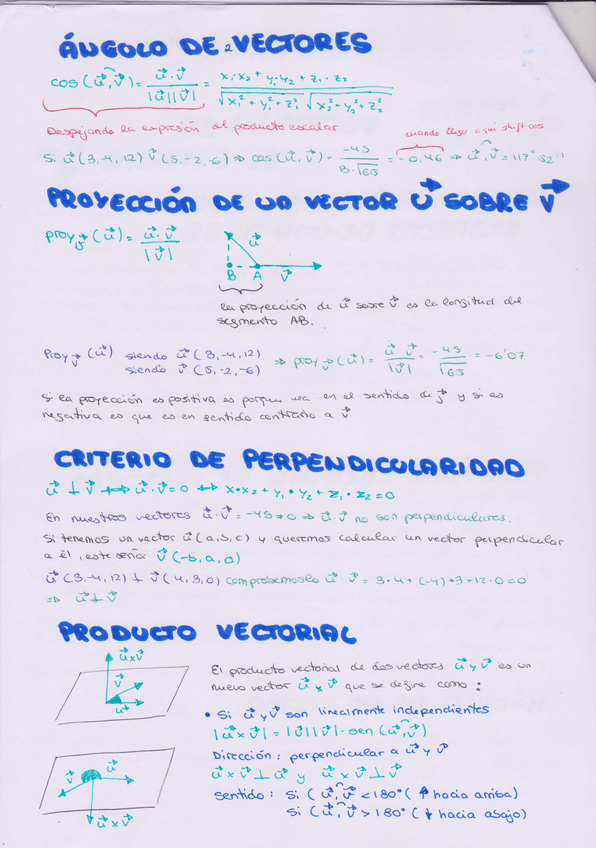 ÁNGULO DE 2 VECTORES
cos(u⃗,v⃗) = u⃗·v⃗ / |u⃗||v⃗| = x₁·x₂ + y₁·y₂ + z₁·z₂ / √x₁²+y₁²+z₁² √x₂²+y₂²+z₂²
Despejando la expresión al producto escalar
cuando llego aquí shift cos
Si u⃗(3,-4,12) v⃗(5,-2,-6) ⇒ cos(u⃗,v⃗) = -49 / 13·√65 = -0,46 ⇒ u⃗,v⃗ = 117° 52'
PROYECCIÓN DE UN VECTOR U⃗ SOBRE V⃗
proy v⃗ (u⃗) = u⃗·v⃗ / |v⃗|
u⃗
B A v⃗
La proyección de u⃗ sobre v⃗ es la longitud del
segmento AB.
Proy v⃗ (u⃗) siendo u⃗(3,-4,12) ⇒ proy v⃗ (u⃗) = u⃗·v⃗ / |v⃗| = -49 / √65 = -6'07
siendo v⃗(5,-2,-6)
Si la proyección es positiva es porque va en el sentido de v⃗ y si es
negativa es que es en sentido contrario a v⃗
CRITERIO DE PERPENDICULARIDAD
u⃗ ⊥ v⃗ ⟺ u⃗·v⃗=0 ⟺ x·x₂ + y₁·y₂ + z₁·z₂=0
En nuestros vectores u⃗·v⃗ = -49 ≠ 0 ⇒ u⃗·v⃗ no son perpendiculares.
Si tenemos un vector u⃗(a,b,c) y queremos calcular un vector perpendicular
a él, este sería v⃗(-b,a,0)
u⃗(3,-4,12) ⊥ v⃗(4,3,0) comprobemoslo u⃗·v⃗ = 3·4+(-4)·3+12·0=0
⇒ u⃗⊥v⃗
PRODUCTO VECTORIAL
u⃗xv⃗
v⃗
u⃗
El producto vectorial de dos vectores u⃗ y v⃗ es un
nuevo vector u⃗ x v⃗ que se define como:
• Si u⃗ y v⃗ son linealmente independientes
|u⃗ x v⃗| = |u⃗||v⃗|·sen(u⃗,v⃗)
Dirección: perpendicular a u⃗ y v⃗
u⃗ x v⃗ ⊥ u⃗ y u⃗ x v⃗ ⊥ v⃗
sentido: Si (u⃗,v⃗ < 180° (↑ hacia arriba)
Si (u⃗,v⃗ > 180° (↓ hacia abajo)
v⃗
u⃗
u⃗xv⃗